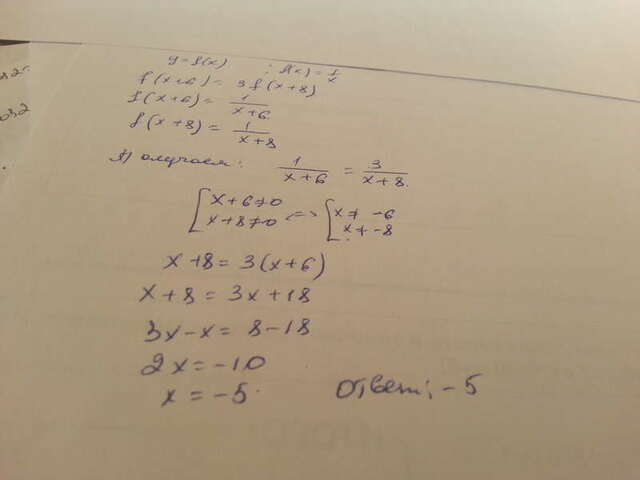 y = f(x) ; f(x) = 1/x
f(x+6) = 3f(x+8)
f(x+6) = 1/(x+6)
f(x+8) = 1/(x+8)
Получаем: 1/(x+6) = 3/(x+8).
[x+6≠0 <=> [x ≠ -6
x+8≠0 x ≠ -8
x+8 = 3(x+6)
x+8 = 3x+18
3x-x = 8-18
2x = -10
x = -5. Ответ: -5